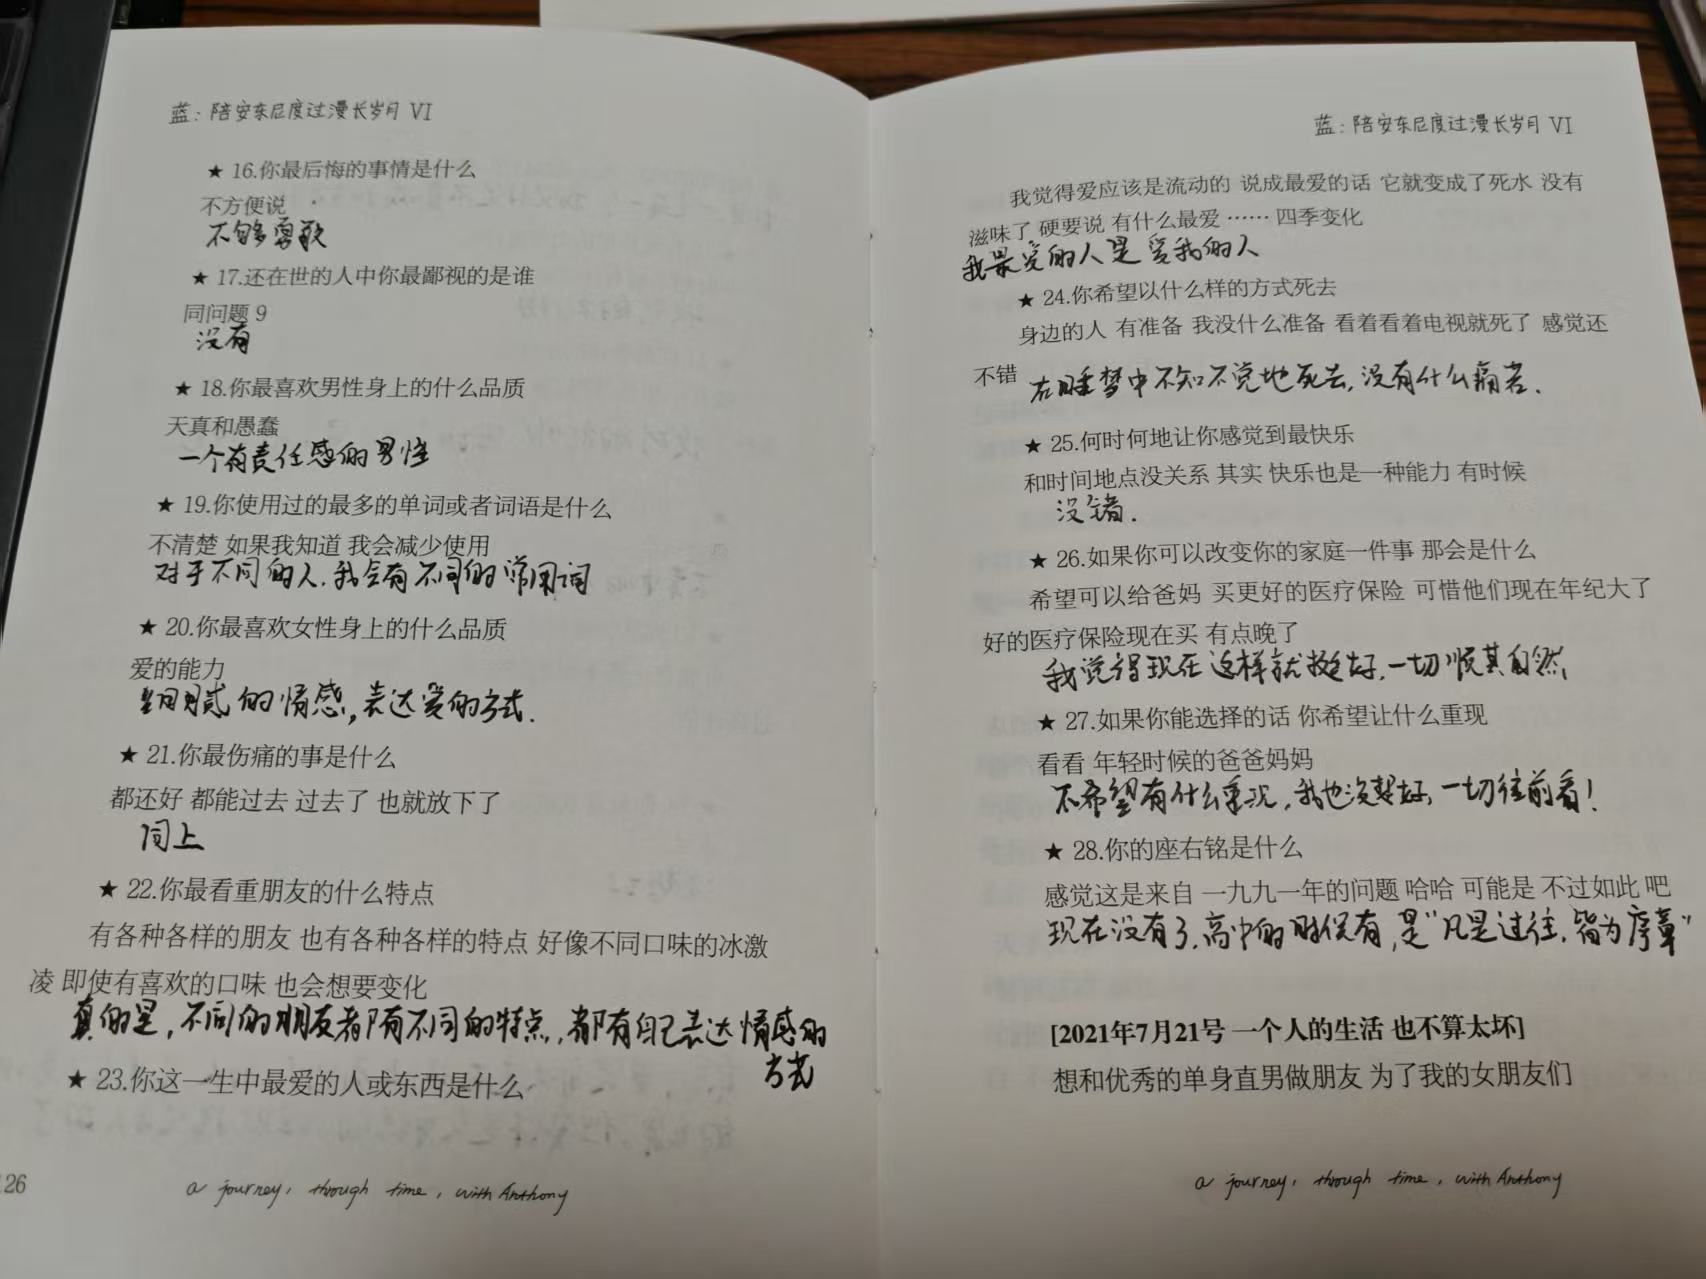 蓝：陪安东尼度过漫长岁月 VI
★ 16.你最后悔的事情是什么
不方便说
不够勇敢
★ 17.还在世的人中你最鄙视的是谁
同问题 9
没有
★ 18.你最喜欢男性身上的什么品质
天真和愚蠢
一个有责任感的男性
★ 19.你使用过的最多的单词或者词语是什么
不清楚 如果我知道 我会减少使用
对于不同的人，我会有不同的常用词
★ 20.你最喜欢女性身上的什么品质
爱的能力
细腻的情感，表达爱的方式.
★ 21.你最伤痛的事是什么
都还好 都能过去 过去了 也就放下了
同上
★ 22.你最看重朋友的什么特点
有各种各样的朋友 也有各种各样的特点 好像不同口味的冰激
凌 即使有喜欢的口味 也会想要变化
真的是，不同的朋友都有不同的特点，都有自己表达情感的
方式
★ 23.你这一生中最爱的人或东西是什么
26
a journey, through time, with Anthony
蓝：陪安东尼度过漫长岁月 VI
我觉得爱应该是流动的 说成最爱的话 它就变成了死水 没有
滋味了 硬要说 有什么最爱 …… 四季变化
我最爱的人是爱我的人
★ 24.你希望以什么样的方式死去
身边的人 有准备 我没什么准备 看着看着电视就死了 感觉还
不错
在睡梦中不知不觉地死去，没有什么痛苦.
★ 25.何时何地让你感觉到最快乐
和时间地点没关系 其实 快乐也是一种能力 有时候
没错.
★ 26.如果你可以改变你的家庭一件事 那会是什么
希望可以给爸妈 买更好的医疗保险 可惜他们现在年纪大了
好的医疗保险现在买 有点晚了
我觉得现在这样就挺好，一切顺其自然
★ 27.如果你能选择的话 你希望让什么重现
看看 年轻时候的爸爸妈妈
不希望有什么重现，我也没想好，一切往前看！
★ 28.你的座右铭是什么
感觉这是来自 一九九一年的问题 哈哈 可能是 不过如此 吧
现在没有了，高中的时候有，是“凡是过往，皆为序章”
[2021年7月21号 一个人的生活 也不算太坏]
想和优秀的单身直男做朋友 为了我的女朋友们
a journey, through time, with Anthony